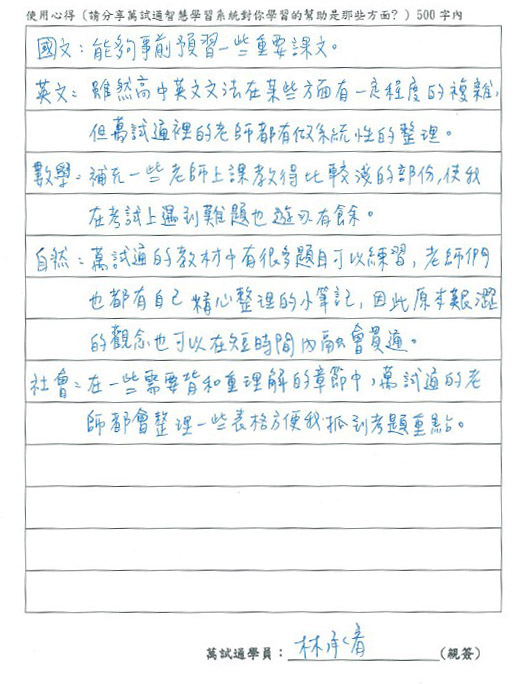 使用心得（請分享萬試通智慧學習系統對你學習的幫助是那些方面？）500 字內
國文：能夠事前預習一些重要課文。
英文：雖然高中英文文法在某些方面有一定程度的複雜，
但萬試通裡的老師都有做系統性的整理。
數學：補充一些老師上課教得比較淺的部份，使我
在考試上遇到難題也遊刃有餘。
自然：萬試通的教材中有很多題目可以練習，老師們
也都有自己精心整理的小筆記，因此原本艱澀
的觀念也可以在短時間內融會貫通。
社會：在一些需要背和重理解的章節中，萬試通的老
師都會整理一些表格方便我抓到考題重點。
萬試通學員：林承（親簽）